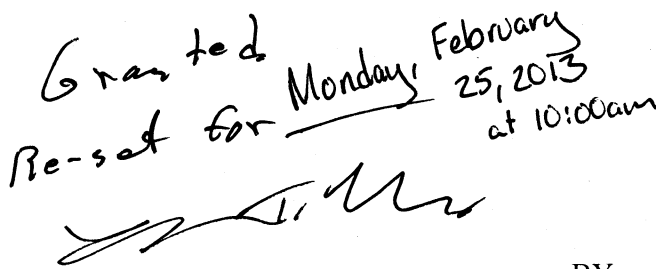 Granted
Re-set for Monday, February
25, 2013
at 10:00am
BY